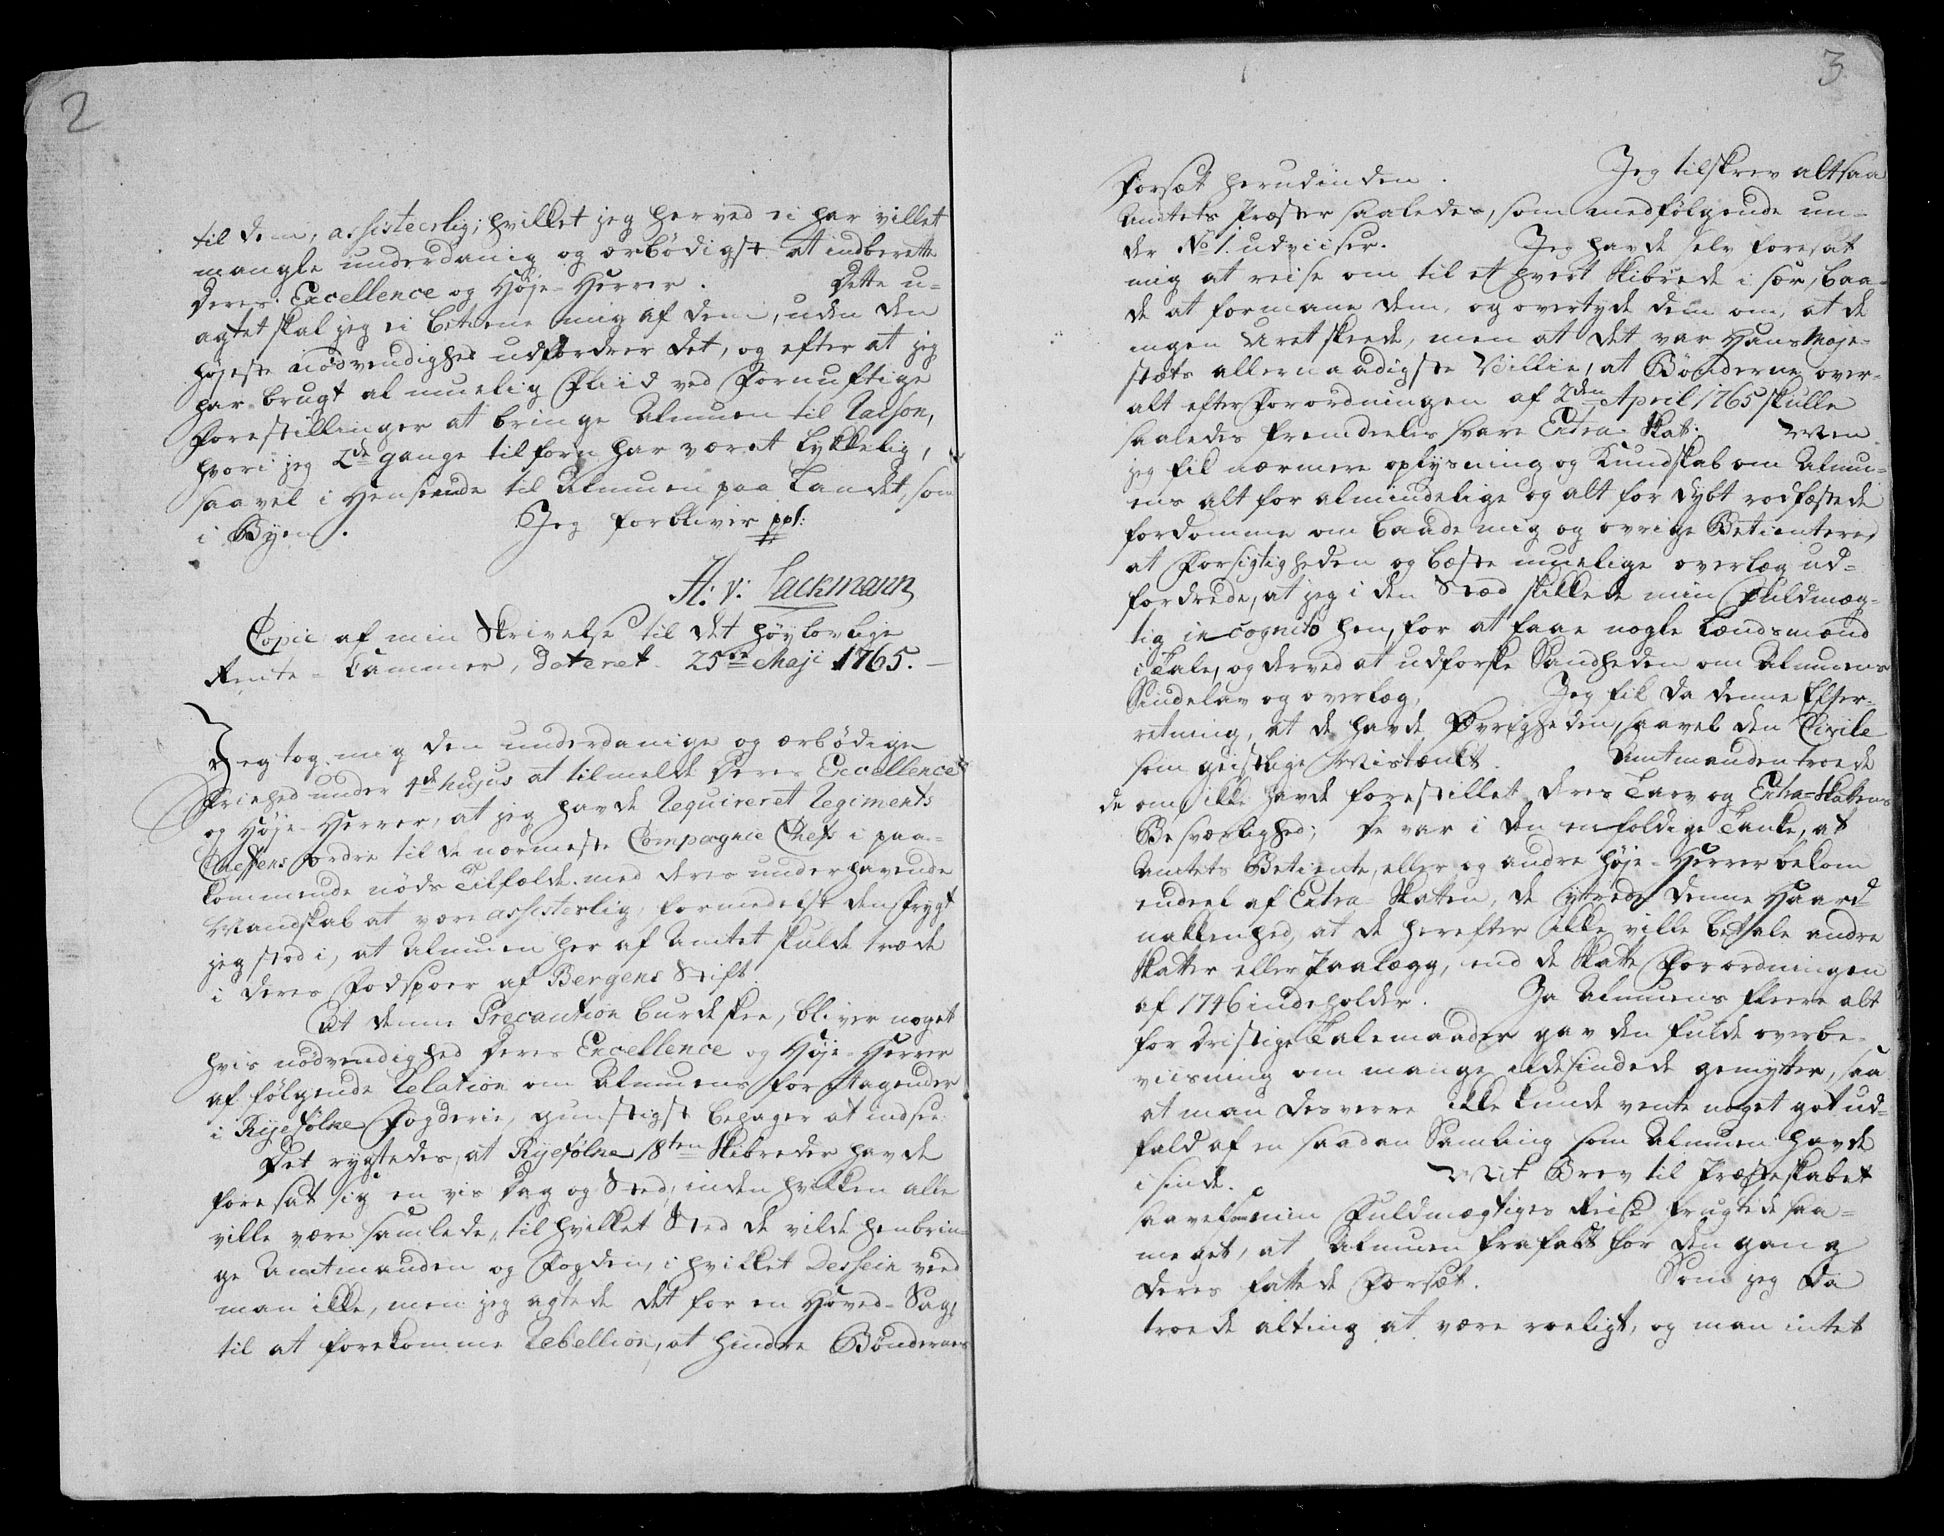 2
til dem, assisteerlig; hvilket jeg herved ei har villet
mangle underdanig og ærbödigst at indberette
Deres Excellence og Høje-Herrer. Dette u-
agtet skal jeg ei betiene mig af dem, uden den
højeste nödvendighed udfordrer det, og efter at jeg
har brugt al muelig Fliid ved Fornuftige
Forestillinger at bringe Almuen til Raison,
hvori jeg 2de gange tilforn har været lykkelig,
saavel i Henseende til Almuen paa Landet, som
i Byen. Jeg forbliver ppl:
H: v: Lackmann
Copie af min Skrivelse til det höylovlige
Rente-Cammer, Dateret 25de Maji 1765.
Jeg tog mig den underdanige og ærbödige
Friehed under 4de hujus at tilmelde Deres Excellence
og Høje-Herrer, at jeg havde Requireret Regiments
Cheffens ordre til de nærmeste Compagnie Chefs i paa-
kommende nöds Tilfælde med deres underhavende
Mandskab at være assisterlig, formedelst den Frygt
jeg stod i, at Almuen her af Amtet skulde træde
i deres Fodspoer af Bergens Stift.
At denne Precaution burde skee, bliver noget
hvis nödvendighed Deres Excellence og Høje-Herrer
af følgende Relation om Almuens foretagender
i Ryefølke Fogderie, gunstigst behager at indsee.
Det rygtedes, at Ryefølke 18ten Skibreder havde
foresat sig en vis Dag og Sted, inden hvilken alle
ville være samlede, til hvilket Sted de vilde henbrin-
ge Amtmanden og Fogden, i hvilket Dessein veed
man ikke, men jeg agtede det for en Hoved-Sag,
til at forekomme Rebellion, at hindre Bøndernes
3
Forsæt herudinden. Jeg tilskrev altsaa
Amtets Præster saaledes, som medfølgende un-
der No 1. udviiser. Jeg havde selv foresat
mig at reise om til et hvert Skibrede i sær, baa-
de at formane dem, og overtyde dem om, at de
ingen Uret skeede, men at det var Hans Maje-
stæts allernaadigste Villie, at Bönderne over-
alt efter Forordningen af 2den April 1765 skulle
saaledes fremdeeles svare Extra-Skat. Men
jeg fik nærmere oplysning og Kundskab om Almu-
ens alt for almindelige og alt for dybt rodfæstede
fordomme om baade mig og øvrige Betientere,
at Forsigtigheden og beste muelige overlæg ud-
fordrede, at jeg i den Sted skikkede min Fuldmæg-
tig incognito hen, for at faae nogle Lændsmænd
i Tale, og derved at udforske Sandheden om Almuens
Sindelav og overlæg. Jeg fik da denne Efter-
retning, at de havde Øvrigheden, saavel den Civile
som geistlige Mistænkt. Amtmanden troede
de om ikke havde forestillet deres Tarv og Extra-Skattens
Besværlighed; de var i den enfoldige Tanke, at
Amtets Betiente, eller og andre Høje-Herrer bekom
endeel af Extra-Skatten, de ytrede denne Haard-
nakkenhed, at de herefter ikke ville betale andre
Skatter eller Paalægg, end de Skatte Forordningen
af 1746 indeholder. Ja Almuens fleere alt
for dristige Talemaader gav den fulde overbe-
viisning om mange ildesindede gemytter, saa
at man desverre ikke kunde vente noget got ud-
fald af en saadan Samling som Almuen havde
i sinde. Mit Brev til Præsteskabet
saavelsom min Fuldmægtiges Reise frugtede saa-
meget, at Almuen frafaldt for den gang
deres fattede Forsæt. Som jeg da
troede alting at være roeligt, og man intet